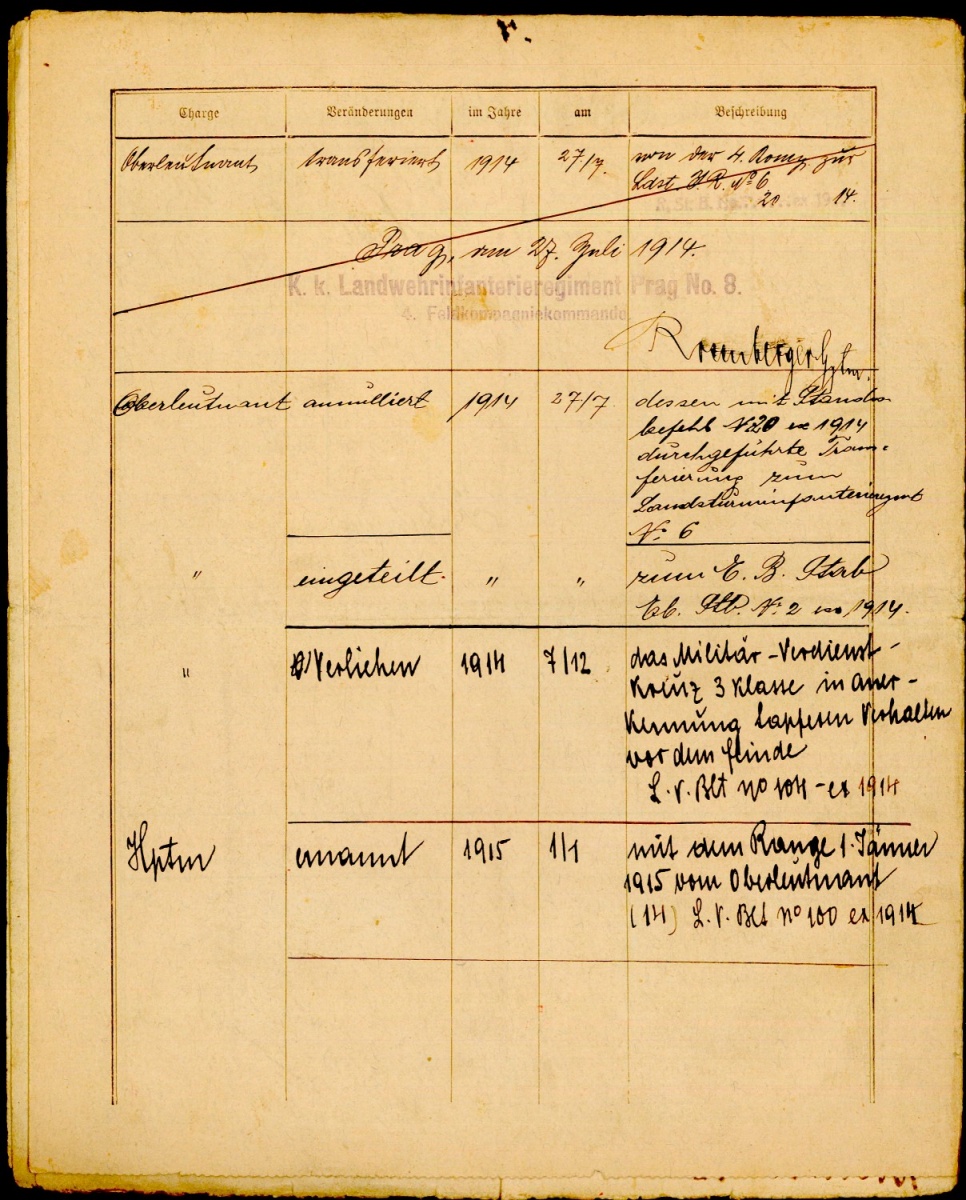 Charge Veränderungen im Jahre am Beschreibung
Oberleutnant transferiert 1914 27/7. von der 4. Komp. zur
Ldst. I. R. No 6
20 14.
Prag, am 27. Juli 1914.
K. k. Landwehrinfanterieregiment Prag No. 8.
4. Feldkompagniekommando.
Hptm.
Oberleutnant annulliert 1914 27/7 dessen mit Standes
befehl N 20 ex 1914
durchgeführte Trans-
ferierung zum
Landsturminfanterieregmt
No 6
" eingeteilt. " " zum E. B. Stab
No 2 ex 1914.
" Verliehen 1914 7/12 das Militär-Verdienst-
Kreuz 3 Klasse in Aner-
kennung tapferen Verhalten
vor dem Feinde
L. V. Blt no 104 - ex 1914
Hptm ernannt 1915 1/1 mit dem Range 1. Jänner
1915 vom Oberleutnant
(14) L. V. Blt no 100 ex 1914